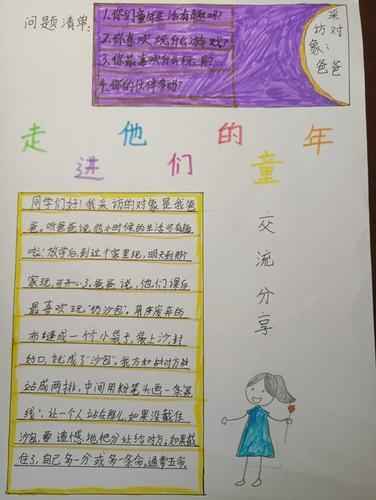 问题清单:
1.你们童年生活有趣吗?
2.你喜欢玩什么游戏?
3.你最喜欢什么玩具?
4.你的伙伴多吗?
采访对象:爸爸
走进他们的童年
交流分享
同学们好!我采访的对象是我爸
爸,听爸爸说,他小时候的生活可有趣
啦!放学后,到这个家里玩,明天到那
家玩,可开心了,爸爸说,他们课后
最喜欢玩"扔沙包",用废弃的
布缝成一个小袋子,装上沙,封
好口,就成了"沙包",我方和对方就
站成两排,中间用粉笔头画一条"
线",让一个人站在那儿,如果没截住
沙包,要遗憾地把分让给对方,如果截
住了,自己多一分或多一条命,通常五